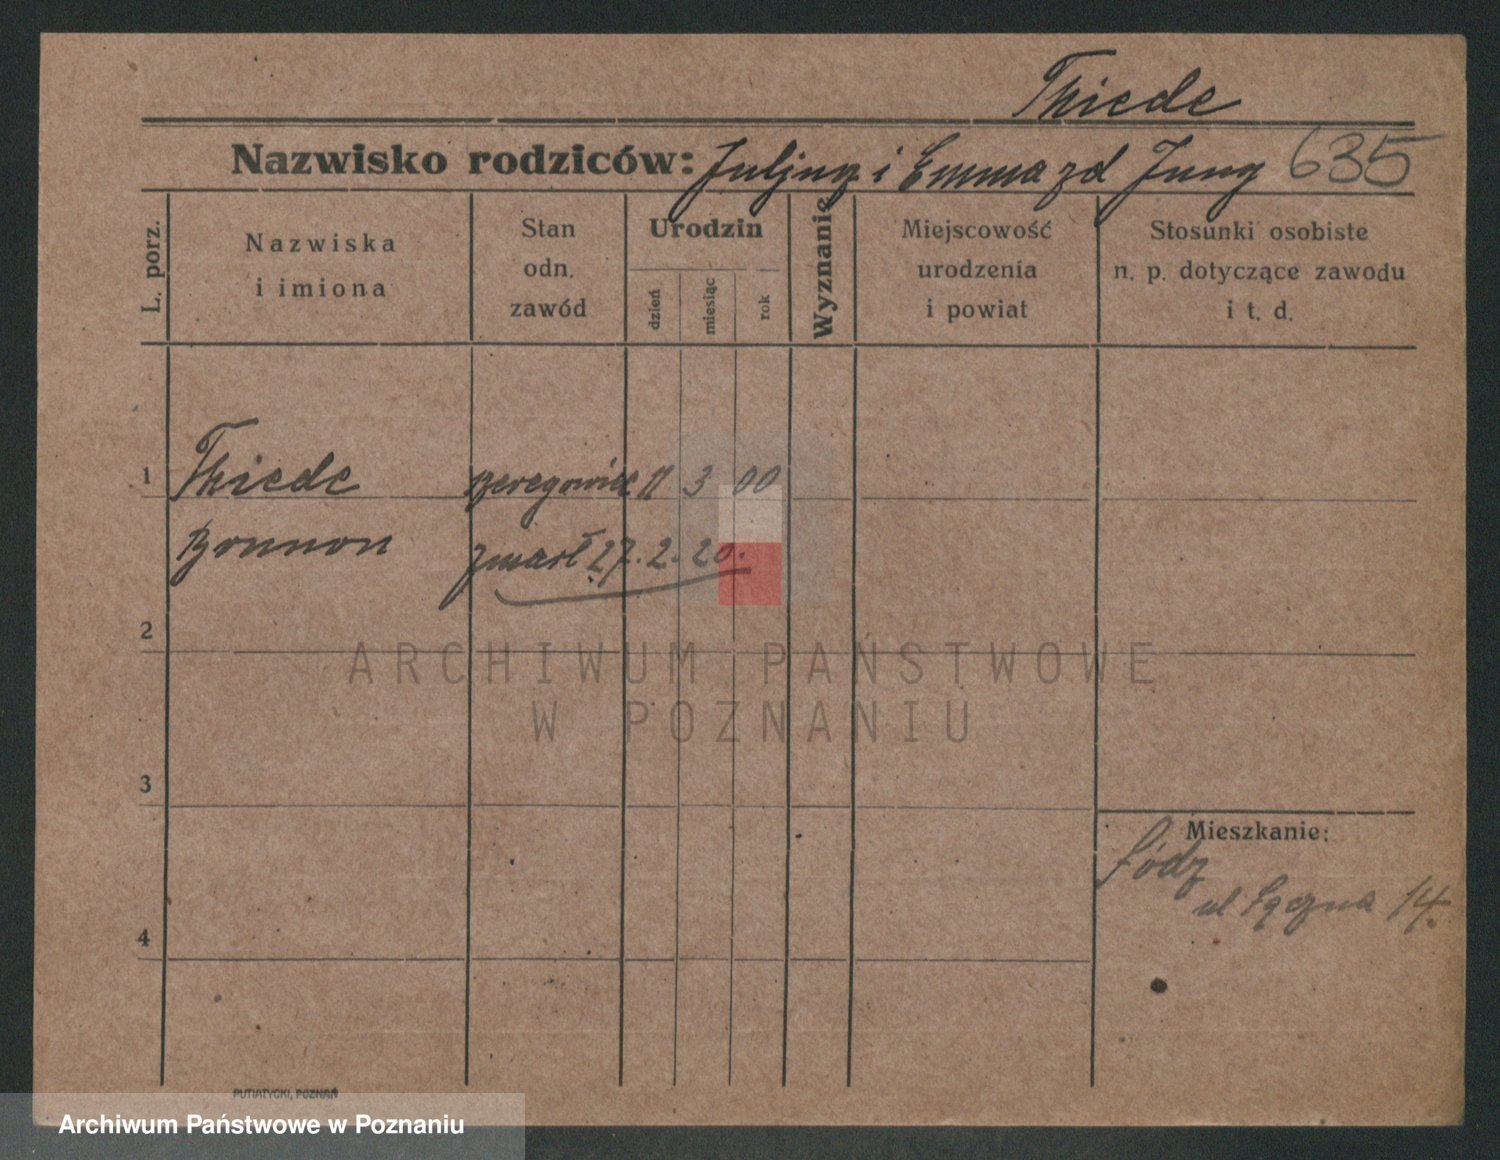 Thiede
Nazwisko rodziców: Juljusz i Emma zd Jung 635
L. porz.
Nazwiska
i imiona
Stan
odn.
zawód
Urodzin
dzień
miesiąc
rok
Wyznanie
Miejscowość
urodzenia
i powiat
Stosunki osobiste
n. p. dotyczące zawodu
i t. d.
1 Thiede szeregowiec 11 3 00
zmarł 27.2.20.
2
3
4
Mieszkanie:
Łódz
ul Łączna 14.
PUTIATYCKI, POZNAŃ
ARCHIWUM PAŃSTWOWE
W POZNANIU
Archiwum Państwowe w Poznaniu